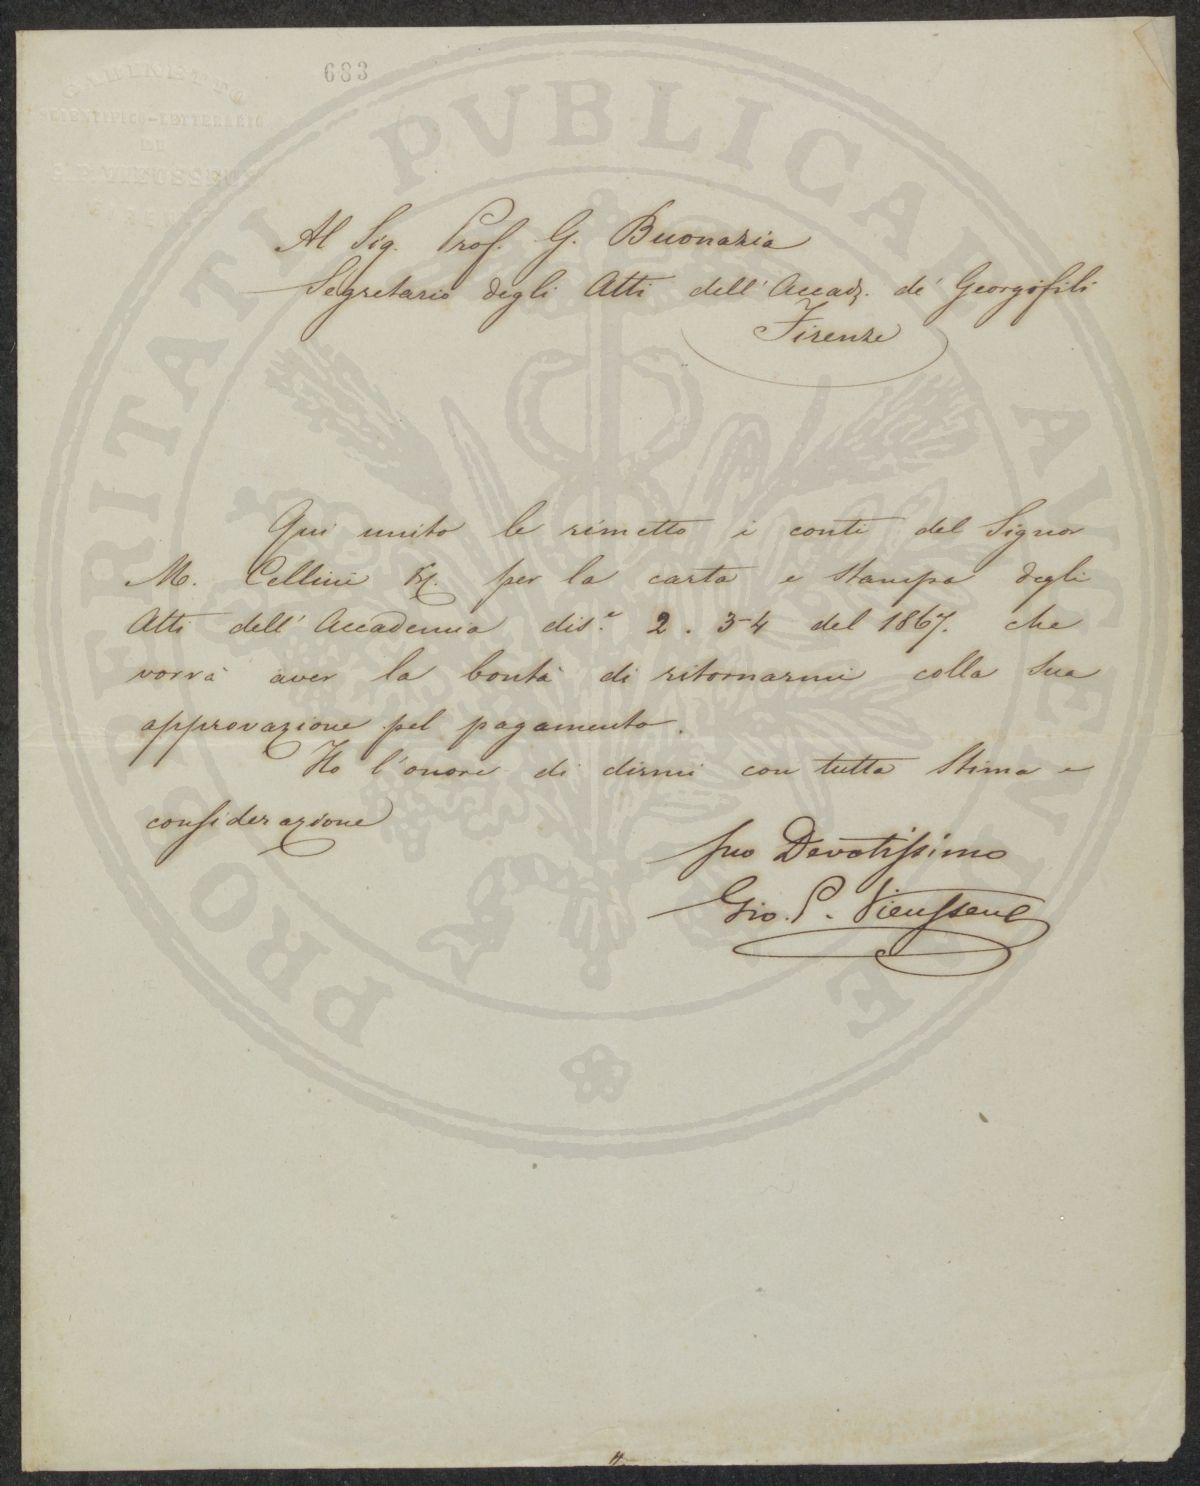 683
GABINETTO
SCIENTIFICO-LETTERARIO
DI
G. P. VIEUSSEUX
FIRENZE
PROSPERITATI PVBLICAE AVGENDAE
Al Sig. Prof. G. Buonazia
Segretario degli Atti dell'Accad. de' Georgofili
Firenze
Qui unito le rimetto i conti del Signor
M. Cellini per la carta e stampa degli
Atti dell'Accademia dis.e 2. 3-4 del 1867. che
vorrà aver la bontà di ritornarmi colla sua
approvazione pel pagamento.
Ho l'onore di dirmi con tutta stima e
considerazione
suo Devotissimo
Gio. P. Vieusseux